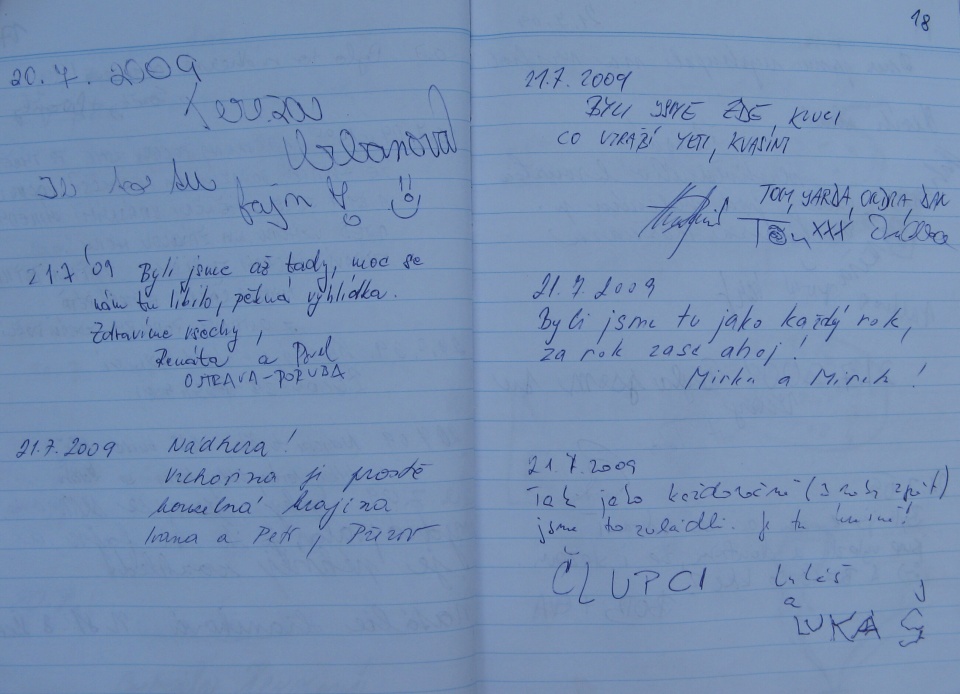 20.7.2009
Tereza
Urbanová
Je to tu
fajn!
21.7.'09 Byli jsme až tady, moc se
nám tu líbilo, pěkná vyhlídka.
Zdravíme všechny,
Renáta a Pavel
OSTRAVA-PORUBA
21.7.2009 Nádhera!
Vrchovina je prostě
kouzelná krajina
Ivana a Petr,
18
21.7.2009
BYLI JSME ZDE, KLUCI
CO VTRAŽÍ YETI, KVASINY
TOM, YARDA, ONDRA, DAN
Tom XXX
21.7.2009
Byli jsme tu jako každý rok,
za rok zase ahoj!
Mirka a Mirek!
21.7.2009
Tak jako každoročně (3 roky zpět)
jsme to zvládli. Je tu krásně!
ČLUPCI
Lukáš
a
LUKÁŠ